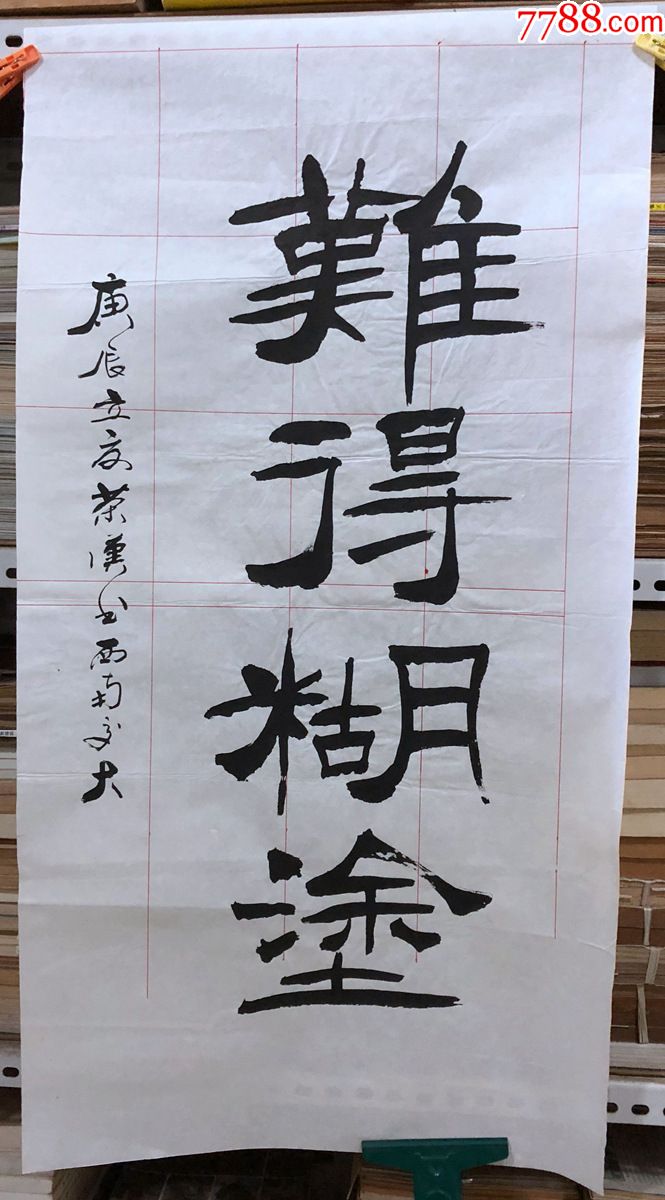 7788.com
難得糊塗
庚辰立夏荣漢书西南交大